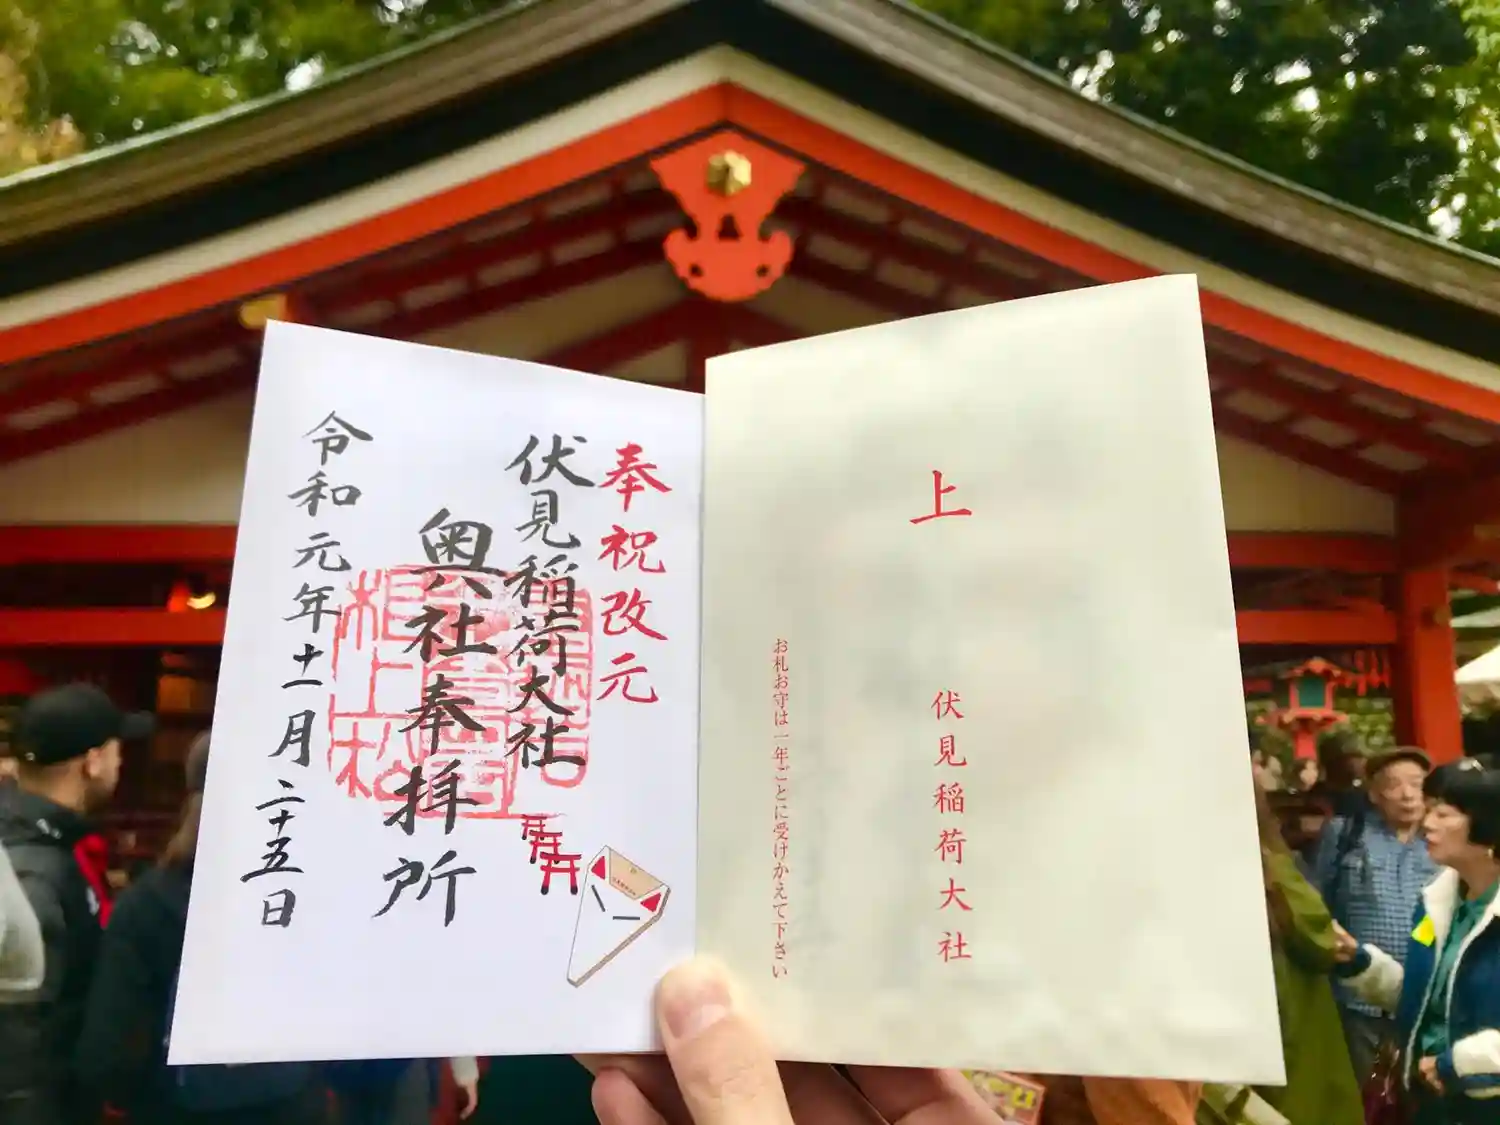 上
伏見稲荷大社
お札お守は一年ごとに受けかえて下さい
奉祝改元
伏見稲荷大社
奥社奉拝所
令和元年十一月二十五日